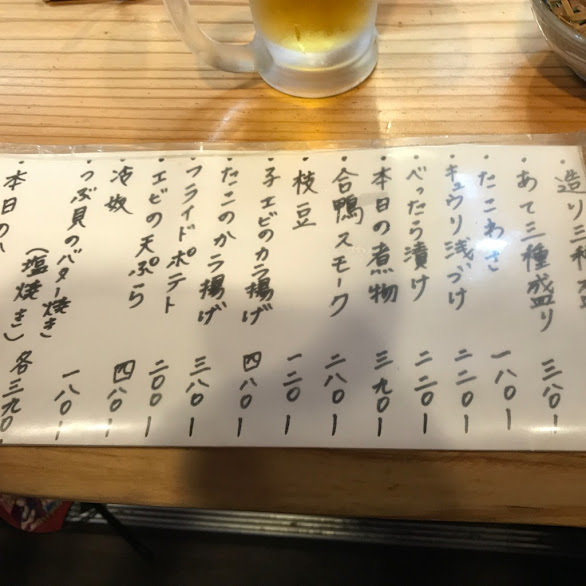 ・造り三種
・あて三種盛り 三八〇ー
・たこわさ 一八〇ー
・キュウリ浅づけ 二二〇ー
・べったら漬け 二二〇ー
・本日の煮物 三九〇ー
・合鴨スモーク 二八〇ー
・枝豆 一二〇ー
・子エビのカラ揚げ 四八〇ー
・たこのカラ揚げ 三八〇ー
・フライドポテト 二〇〇ー
・エビの天ぷら 四八〇ー
・冷奴 一八〇ー
・つぶ貝のバター焼き
(塩焼き) 各三九〇ー
・本日の